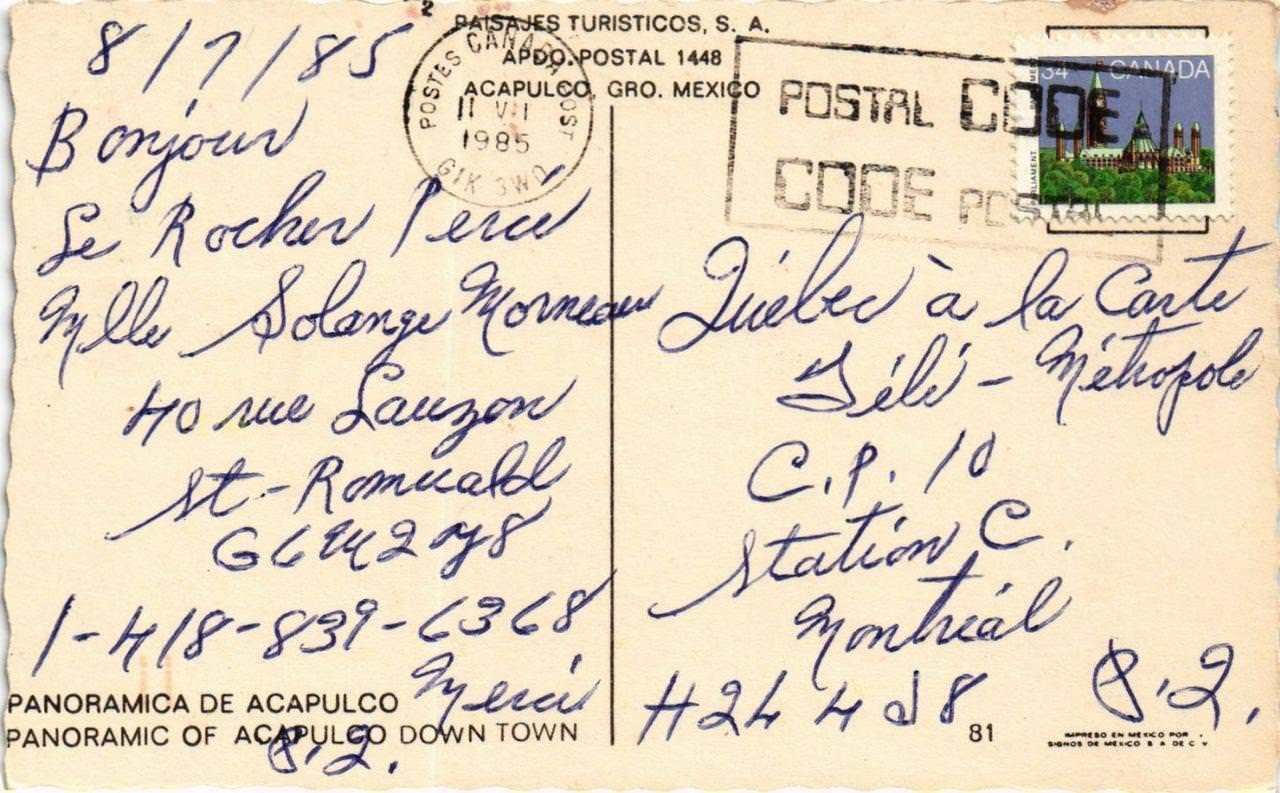 PAISAJES TURISTICOS, S. A.
APDO. POSTAL 1448
ACAPULCO, GRO. MEXICO
POSTES CANADA POST
11 VII
1985
G1K 3W0
POSTAL CODE
CODE POSTAL
34 CANADA
8/7/85
Bonjour
Le Rocher Percé
Mlle Solange Morneau
40 rue Lauzon
St-Romuald
G6W 2Y8
1-418-839-6368
Merci
P.2.
Québec à la Carte
Télé-Métropole
C.P. 10
Station C.
Montréal
P.2.
H2L 4J8
PANORAMICA DE ACAPULCO
PANORAMIC OF ACAPULCO DOWN TOWN
81
IMPRESO EN MEXICO POR
SIGNOS DE MEXICO S A DE C V